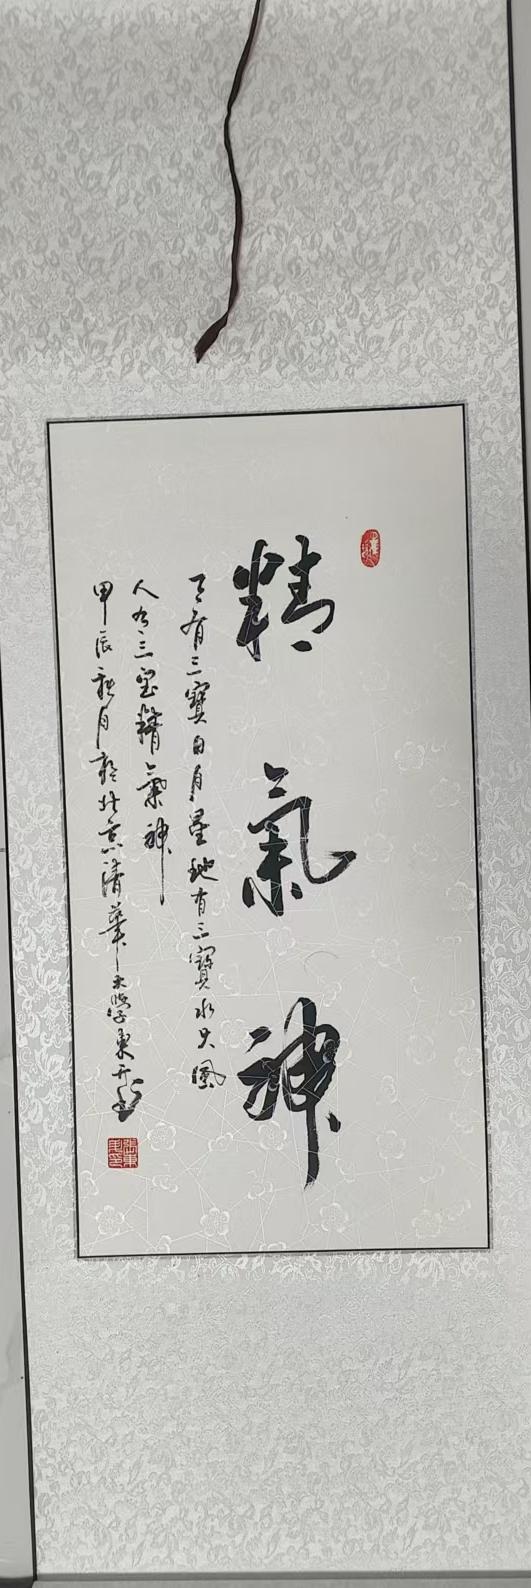 精氣神
天有三寳日月星地有三寳水火風
人有三宝精氣神
甲辰秋月於北京清華大學東升书